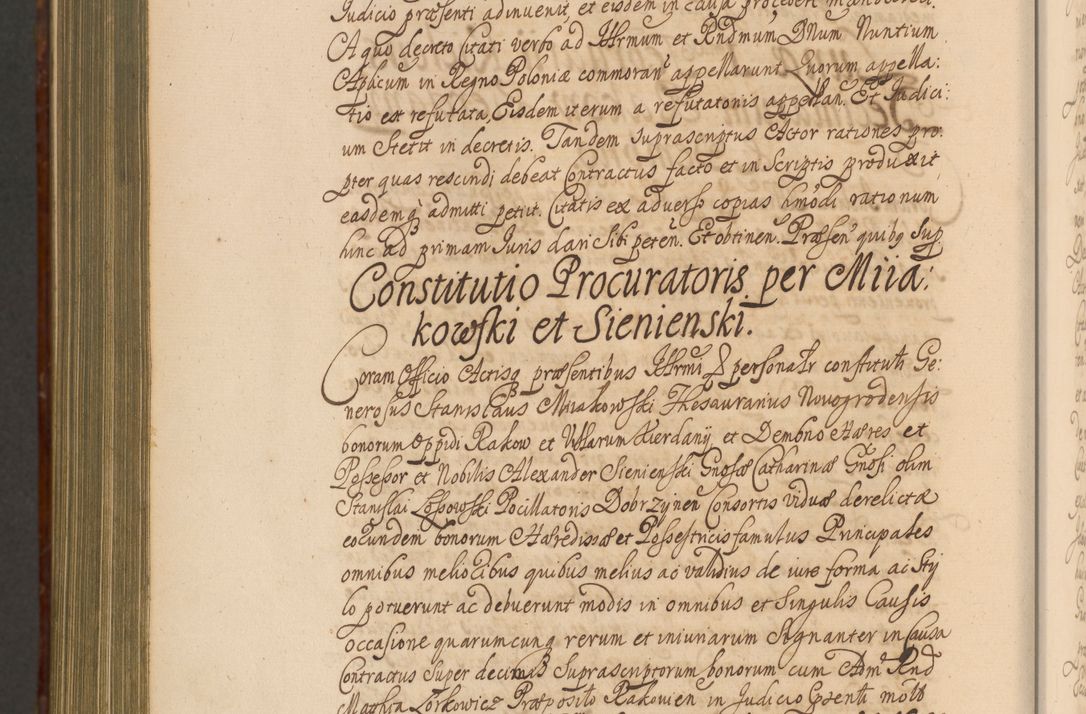 Judicio præsenti adinvenit, et eisdem in causa procedere mandavit.
A quo decreto Citati verbo ad Illrmum et Rndmum DNum Nuntium
Aplicum in Regno Poloniæ commoran appellarunt Quorum appella:
tio est refutata, Eisdem iterum a refutatonis appellan. Et Judici:
um Stetit in decretis. Tandem suprascriptus Actor rationes pro:
pter quas rescindi debeat Contractus facto et in Scriptis produxit
easdemq admitti petiit. Citatis ex adverso copias hmodi rationum
hinc ad primam Juris dari sibi peten. Et obtinen. Præsen quibq Sup
Constitutio Procuratoris per Miia:
kowski et Sienienski.
Coram Officio Actisq præsentibus Illrmi personalr constituti Ge:
nerosus Stanislaus Miiakowski Thesaurarius Novogrodensis
bonorum Oppidi Rakow et Villarum Kierdanÿ et Dembno Hæres et
Possessor et Nobilis Alexander Sienienski Gnosæ Catharinæ Gnosi olim
Stanislai Lossowski Pocillatoris Dobrzynen Consortis viduæ derelictæ
eorundem bonorum Hæredissæ et Possestricis famulus Principales
omnibus melioribus quibus melius ac validius de iure forma ac Sty
lo potuerunt ac debuerunt modis in omnibus et Singulis Causis
occasione quarumcunq rerum et iniuriarum Signanter in Causa
Contractus Super decimas Suprascriptorum bonorum cum Adm Rnd
Mathia Lorkowicz Præposito Rakovien in Judicio Præsenti moto